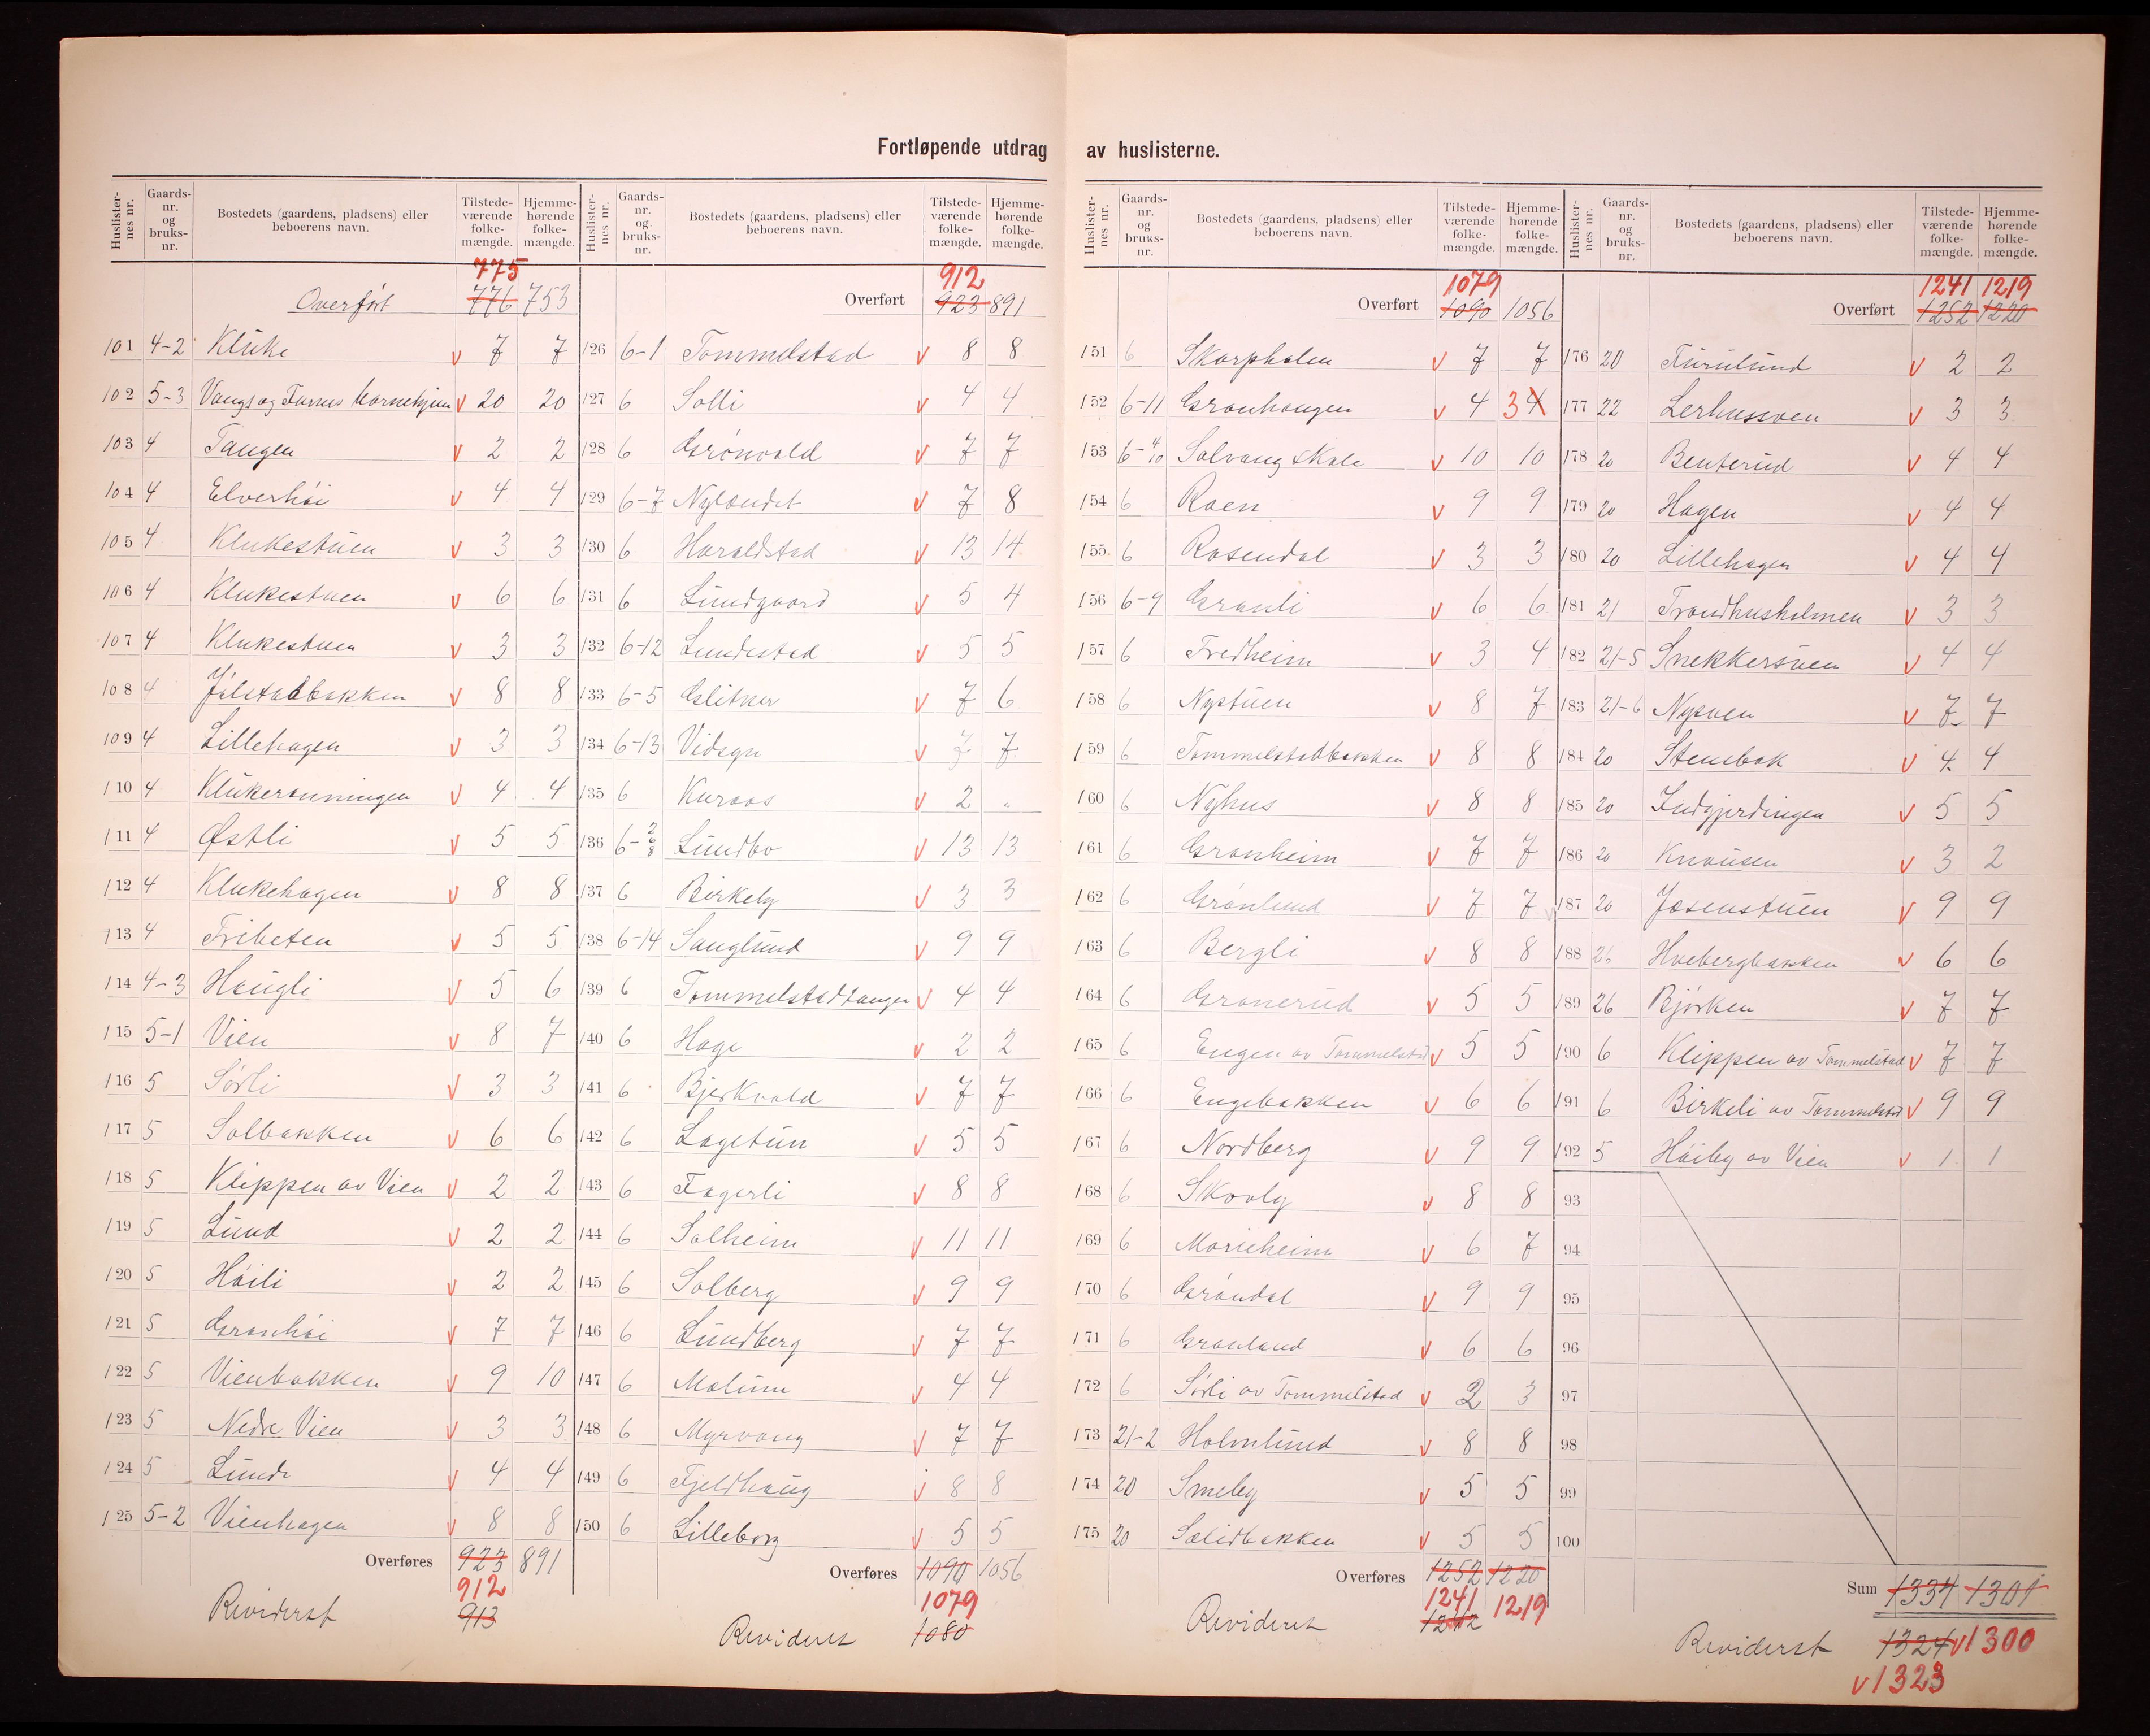 Fortløpende utdrag av huslisterne.
Huslisternes nr. Gaardsnr. og bruksnr. Bostedets (gaardens, pladsens) eller beboerens navn. Tilstedeværende folkemængde. Hjemmehørende folkemængde.
775
Overført 776 753
101 4-2 Kluke v 7 7
102 5-3 Vangs og Furnes barnehjem v 20 20
103 4 Tangen v 2 2
104 4 Elverhöi v 4 4
105 4 Klukestuen v 3 3
106 4 Klukestuen v 6 6
107 4 Klukestuen v 3 3
108 4 Jølstadbakken v 8 8
109 4 Lillehagen v 3 3
110 4 Klukerønningen v 4 4
111 4 Østli v 5 5
112 4 Klukehagen v 8 8
113 4 Tribeten v 5 5
114 4-3 Haugli v 5 6
115 5-1 Vien v 8 7
116 5 Sørli v 3 3
117 5 Solbakken v 6 6
118 5 Klippen av Vien v 2 2
119 5 Lund v 2 2
120 5 Höili v 2 2
121 5 Granhöi v 7 7
122 5 Vienbakken v 9 10
123 5 Nedre Vien v 3 3
124 5 Lunde v 4 4
125 5-2 Vienhagen v 8 8
Overføres 923 891
912
Revideret 913
Huslisternes nr. Gaardsnr. og bruksnr. Bostedets (gaardens, pladsens) eller beboerens navn. Tilstedeværende folkemængde. Hjemmehørende folkemængde.
912
Overført 923 891
126 6-1 Tommelstad v 8 8
127 6 Solli v 4 4
128 6 Grönvold v 7 7
129 6-7 Nylændet v 7 8
130 6 Haraldstad v 13 14
131 6 Lundgaard v 5 4
132 6-12 Lundestad v 5 5
133 6-5 Glitner v 7 6
134 6-13 Vidsyn v 7 7
135 6 Kuraas v 2 "
136 6-2 6 8 Lundbo v 13 13
137 6 Birkely v 3 3
138 6-14 Sanglund v 9 9
139 6 Tommelstadtangen v 4 4
140 6 Hage v 2 2
141 6 Bjerkvold v 7 7
142 6 Lagetun v 5 5
143 6 Fagerli v 8 8
144 6 Solheim v 11 11
145 6 Solberg v 9 9
146 6 Lundberg v 7 7
147 6 Molum v 4 4
148 6 Myrvang v 7 7
149 6 Fjeldhaug v 8 8
150 6 Lilleborg v 5 5
Overføres 1090 1056
1079
Revideret 1080
Huslisternes nr. Gaardsnr. og bruksnr. Bostedets (gaardens, pladsens) eller beboerens navn. Tilstedeværende folkemængde. Hjemmehørende folkemængde.
1079
Overført 1090 1056
151 6 Skarpholen v 7 7
152 6-11 Granhaugen v 4 3 4
153 6-4 10 Solvang skole v 10 10
154 6 Roen v 9 9
155 6 Rosendal v 3 3
156 6-9 Granli v 6 6
157 6 Fredheim v 3 4
158 6 Nystuen v 8 7
159 6 Tommelstadbakken v 8 8
160 6 Nyhus v 8 8
161 6 Granheim v 7 7
162 6 Grönlund v 7 7
163 6 Bergli v 8 8
164 6 Granerud v 5 5
165 6 Engen av Tommelstad v 5 5
166 6 Engebakken v 6 6
167 6 Nordberg v 9 9
168 6 Skovly v 8 8
169 6 Marieheim v 6 7
170 6 Gröndal v 9 9
171 6 Granland v 6 6
172 6 Sørli av Tommelstad v 2 3
173 21-2 Holmlund v 8 8
174 20 Smeby v 5 5
175 20 Solidbakken v 5 5
Overføres 1252 1220
1241 1219
Revideret 1242
Huslisternes nr. Gaardsnr. og bruksnr. Bostedets (gaardens, pladsens) eller beboerens navn. Tilstedeværende folkemængde. Hjemmehørende folkemængde.
1241 1219
Overført 1252 1220
176 20 Furulund v 2 2
177 22 Lerhussven v 3 3
178 20 Benterud v 4 4
179 20 Hagen v 4 4
180 20 Lillehagen v 4 4
181 21 Trondhusholmen v 3 3
182 21-5 Snekkersven v 4 4
183 21-6 Nysven v 7 7
184 20 Stenbæk v 4 4
185 20 Indgjerdingen v 5 5
186 20 Knausen v 3 2
187 20 Josenstuen v 9 9
188 26 Hvebergbakken v 6 6
189 26 Bjørken v 7 7
190 6 Klippen av Tommelstad v 7 7
191 6 Birkeli av Tommelstad v 9 9
192 5 Höiby av Vien v 1 1
93
94
95
96
97
98
99
100
Sum 1334 1301
Revideret 1324 v1300
v1323